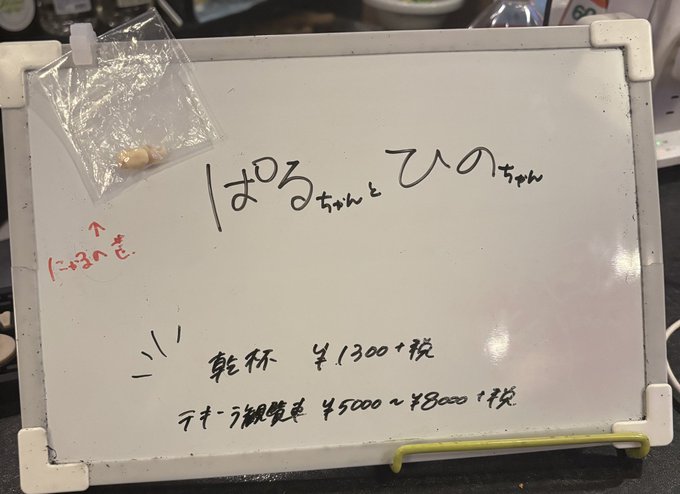 ぱるちゃんとひのちゃん
↑
にゃるの芒
乾杯 ¥1300+税
テキーラ観覧車 ¥5000~¥8000+税